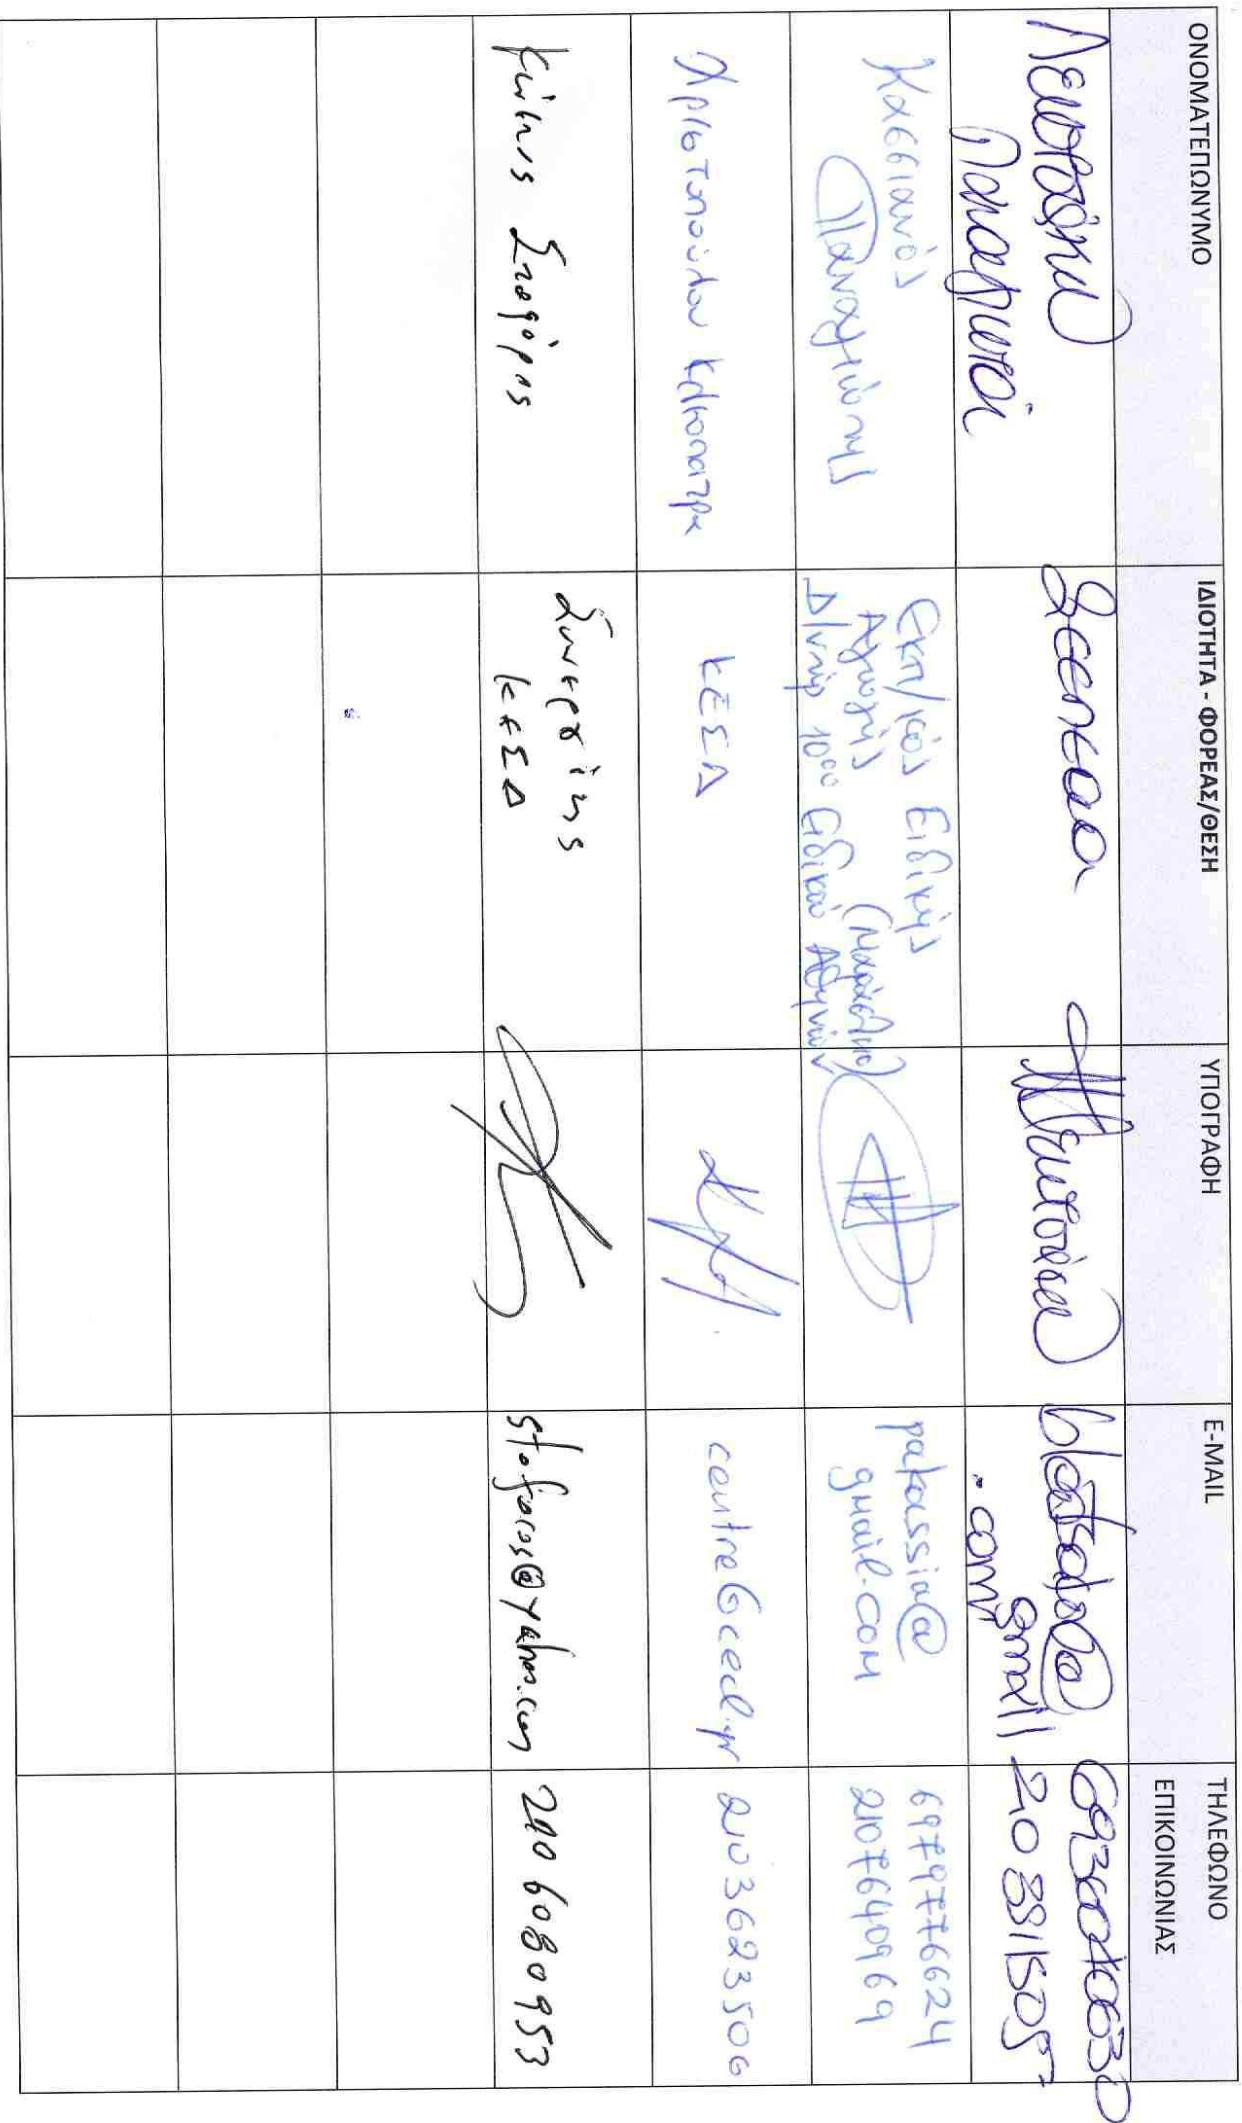 ΟΝΟΜΑΤΕΠΩΝΥΜΟ
ΙΔΙΟΤΗΤΑ - ΦΟΡΕΑΣ/ΘΕΣΗ
ΥΠΟΓΡΑΦΗ
E-MAIL
ΤΗΛΕΦΩΝΟ
ΕΠΙΚΟΙΝΩΝΙΑΣ
Παναγιωτα
gmail
.com
210 8811505
Κασσιανός
Παναγιώτης
Εκπ/κός Ειδικής
Αγωγής
Δ/ντής 10ου Ειδικού Αθηνών
pakassia@
gmail.com
6979776624
2107640969
Χριστοπούλου Κλεοπάτρα
ΚΕΣΔ
centre@cecl.gr
2103623506
Κώτσης Σταφόρος
Συνεργάτης
ΚΕΣΔ
stoforos@yahoo.com
210 6080953